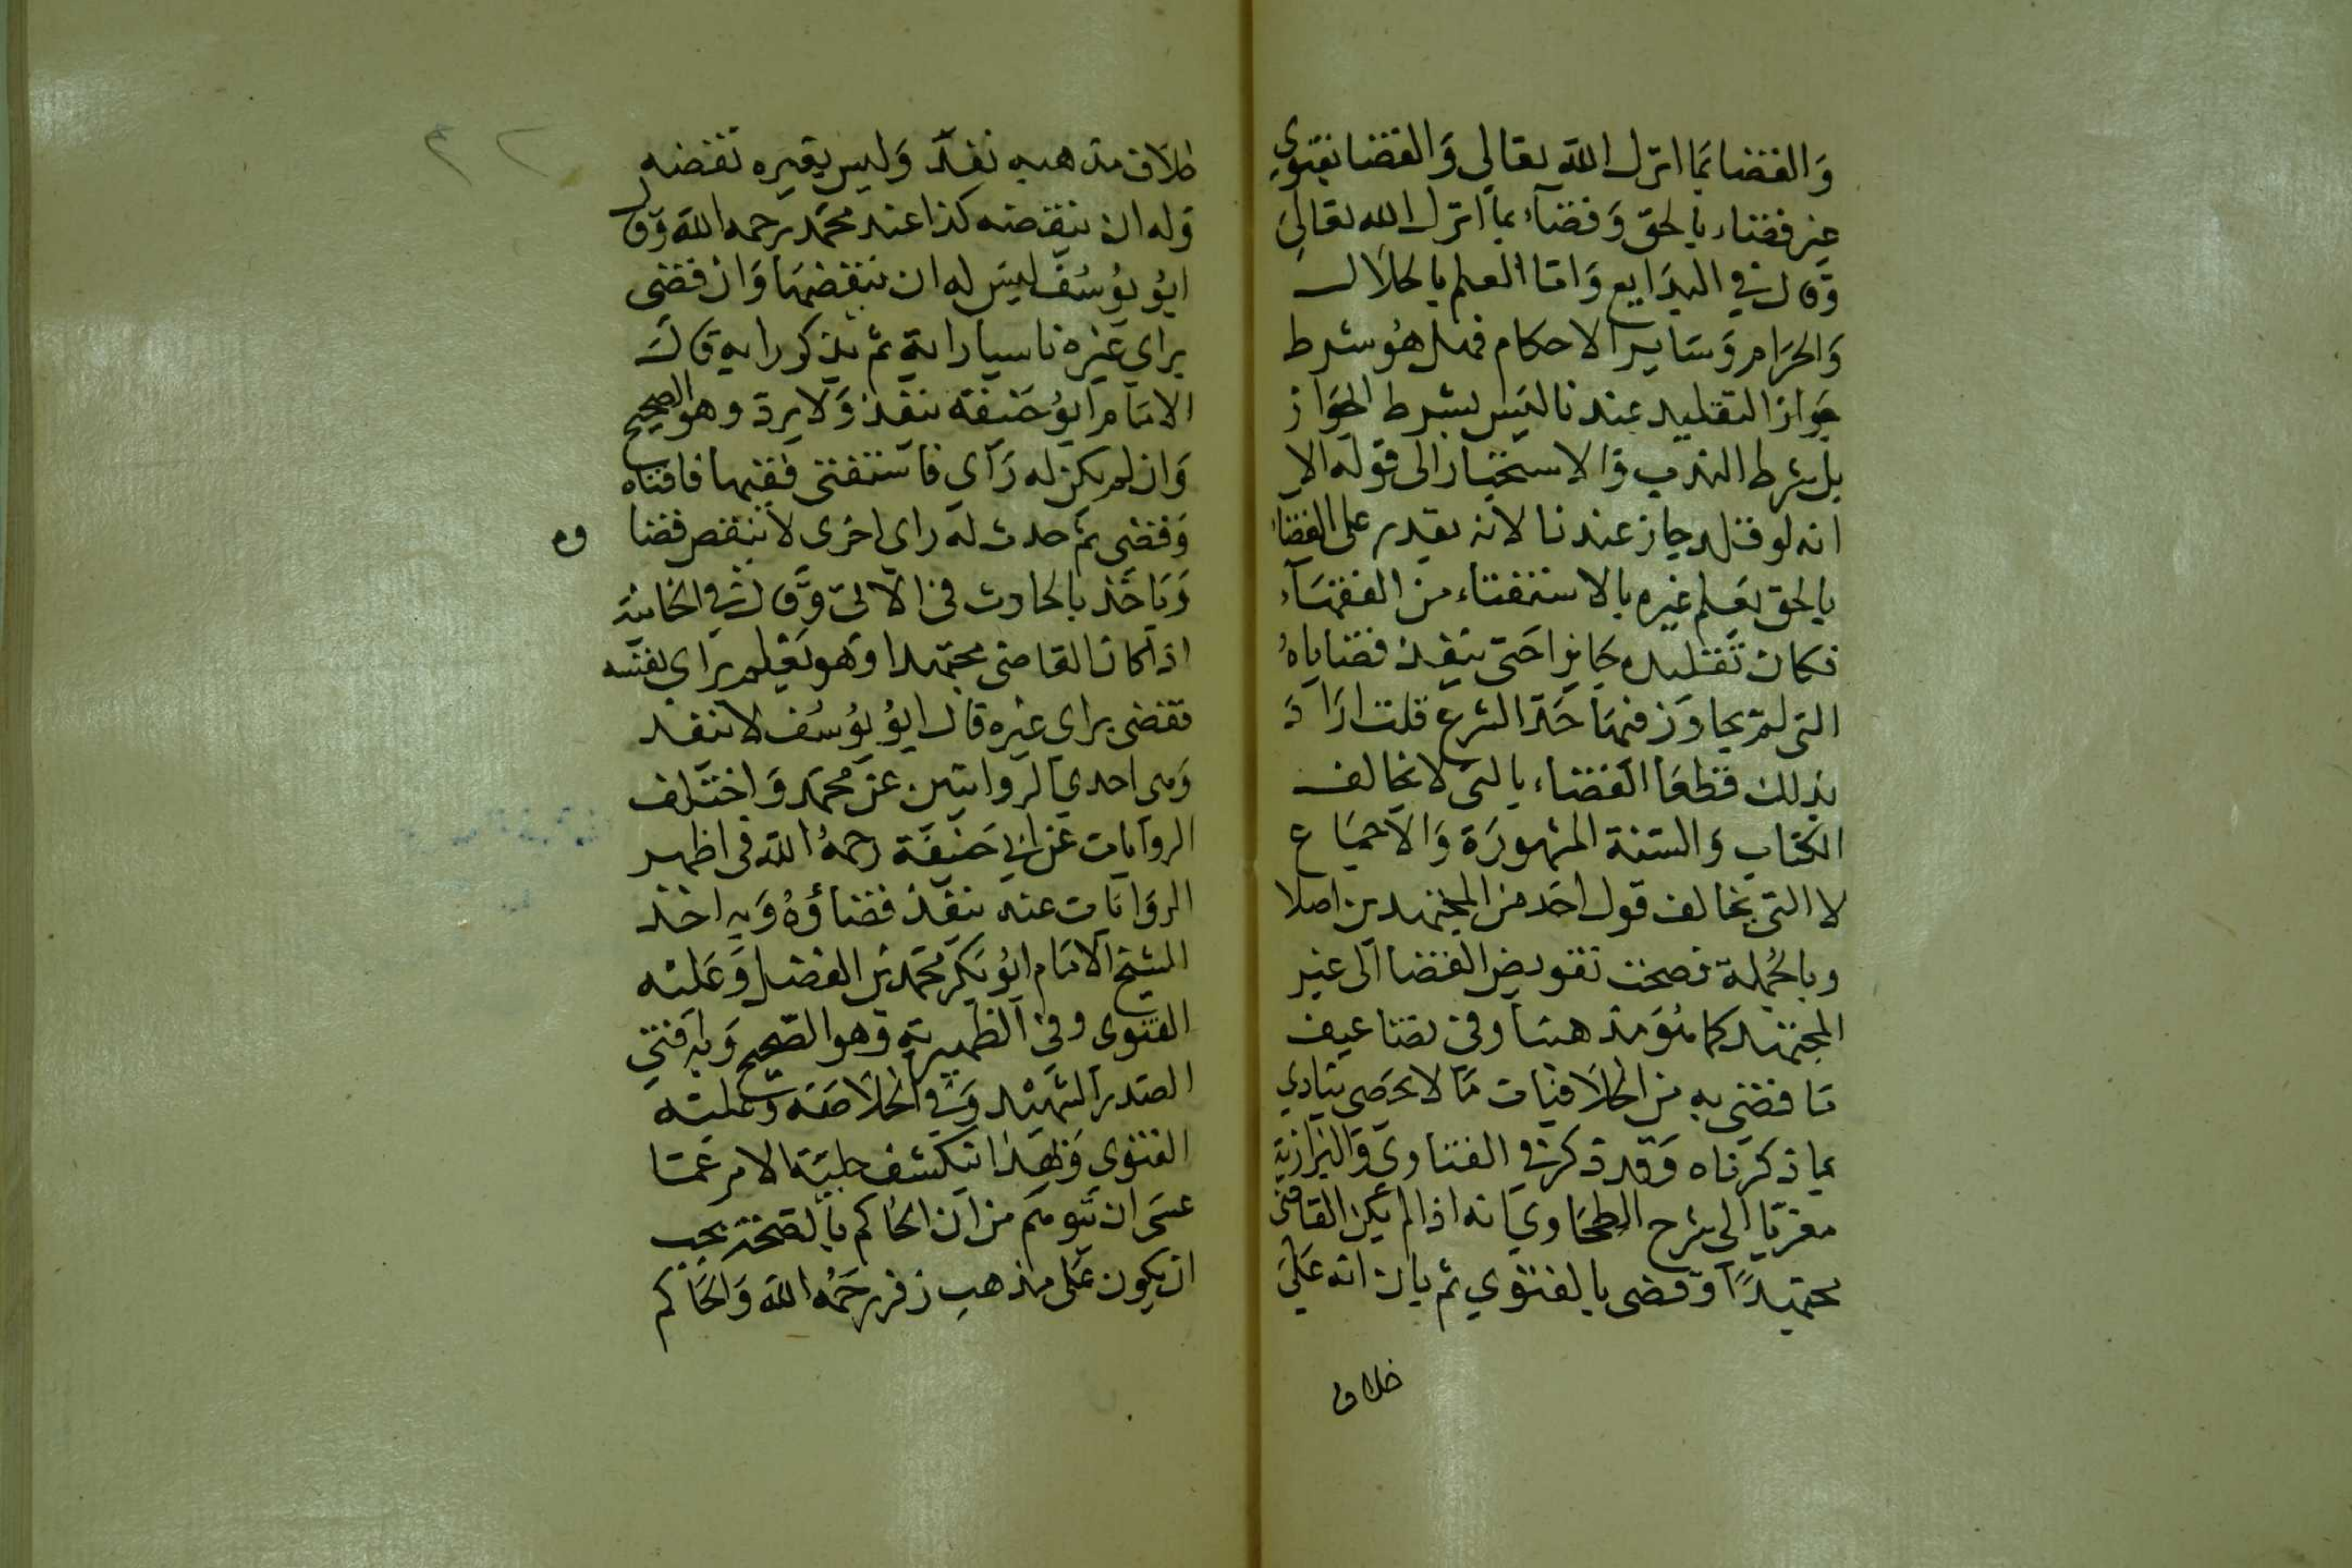 والقضا بما انزل الله تعالى والقضا بفتوى
غير قضاء بالحق وقضاء بما انزل الله تعالى
وقال في البدايع واما العلم بالحلال
والحرام وساير الاحكام فهل هو شرط
جواز التقليد عندنا ليس بشرط الجواز
بل شرط الندب والاستحباب الى قوله الا
انه لو قلد جاز عندنا لانه يقدر على القضاء
بالحق بعلم غيره بالاستفتاء من الفقهاء
فكان تقليده جايزا حتى ينفذ قضاياه
التي لم يجاوز فيها حد الشرع قلت اراد
بذلك قطعا القضاء بالتي لا تخالف
الكتاب والسنة المشهورة والاجماع
لا التي تخالف قول احد من المجتهدين اصلا
وبالجملة فصحت تفويض القضا الى غير
المجتهد كما هو مذهبنا وفي تضاعيف
ما قضي به من الخلافيات ما لا يحصى ينادي
بما ذكرناه وقد ذكر في الفتاوى والبزازية
معزيا الى شرح الطحاوي انه اذا لم يكن القاضي
مجتهدا وقضى بالفتوي ثم بان انه على
خلاف
خلاف مذهبه نفذ وليس لغيره نقضه
وله ان ينقضه كذا عند محمد رحمه الله وقال
ابو يوسف ليس له ان ينقضها وان قضى
براي غيره ناسيا رايه ثم تذكر رايه قال
الامام ابو حنيفة ينفذ ولا يرد وهو الصحيح
وان لم يكن له راى فاستفتى فقيها فافتاه
وقضى ثم حدث له راي اخرى لا ينقض قضا
وياخذ بالحادث في الاتي وقال في الخانية
اذا كان القاضي مجتهدا وهو يعلم براي نفسه
فقضى براى غيره قال ابو يوسف لا ينفذ
وهي احدي الروايتين عن محمد واختلف
الروايات عن ابي حنيفة رحمه الله في اظهر
الروايات عنه ينفذ قضاؤه وبه اخذ
الشيخ الامام ابو بكر محمد بن الفضل وعليه
الفتوى وفي الظهيرية وهو الصحيح وبه يفتي
الصدر الشهيد وفي الخلاصة وعليه
الفتوى وبهذا ينكشف جلية الامر عما
عسى ان يتوهم من ان الحاكم بالصحة يجب
ان يكون على مذهب زفر رحمه الله والحاكم